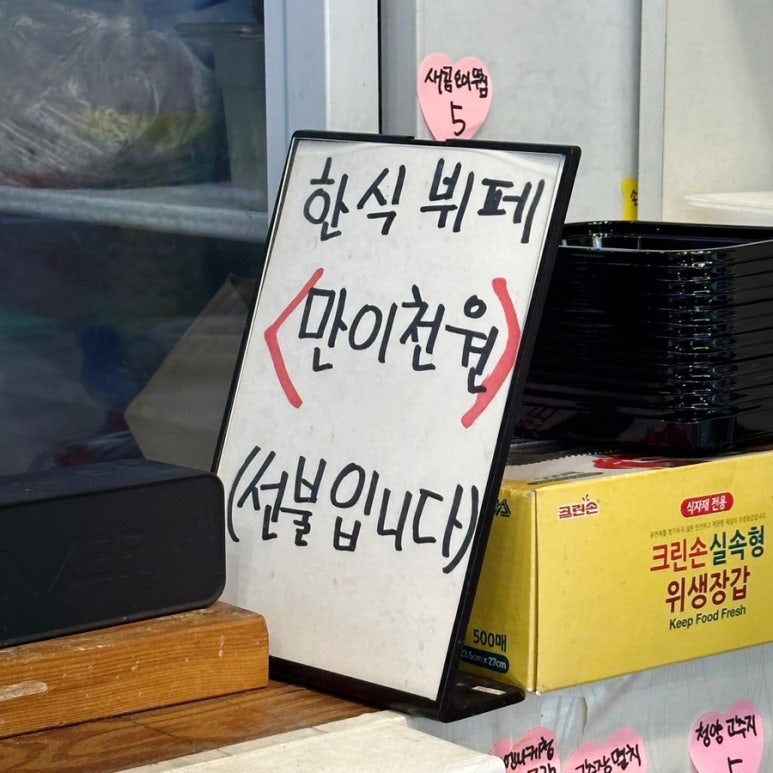 새콤오이무침
5
한식 뷔페
<만이천원>
(선불입니다)
크린손
식자재 전용
크린손 실속형
위생장갑
Keep Food Fresh
500매
x 27cm
청양고추지
5
고추장멸치